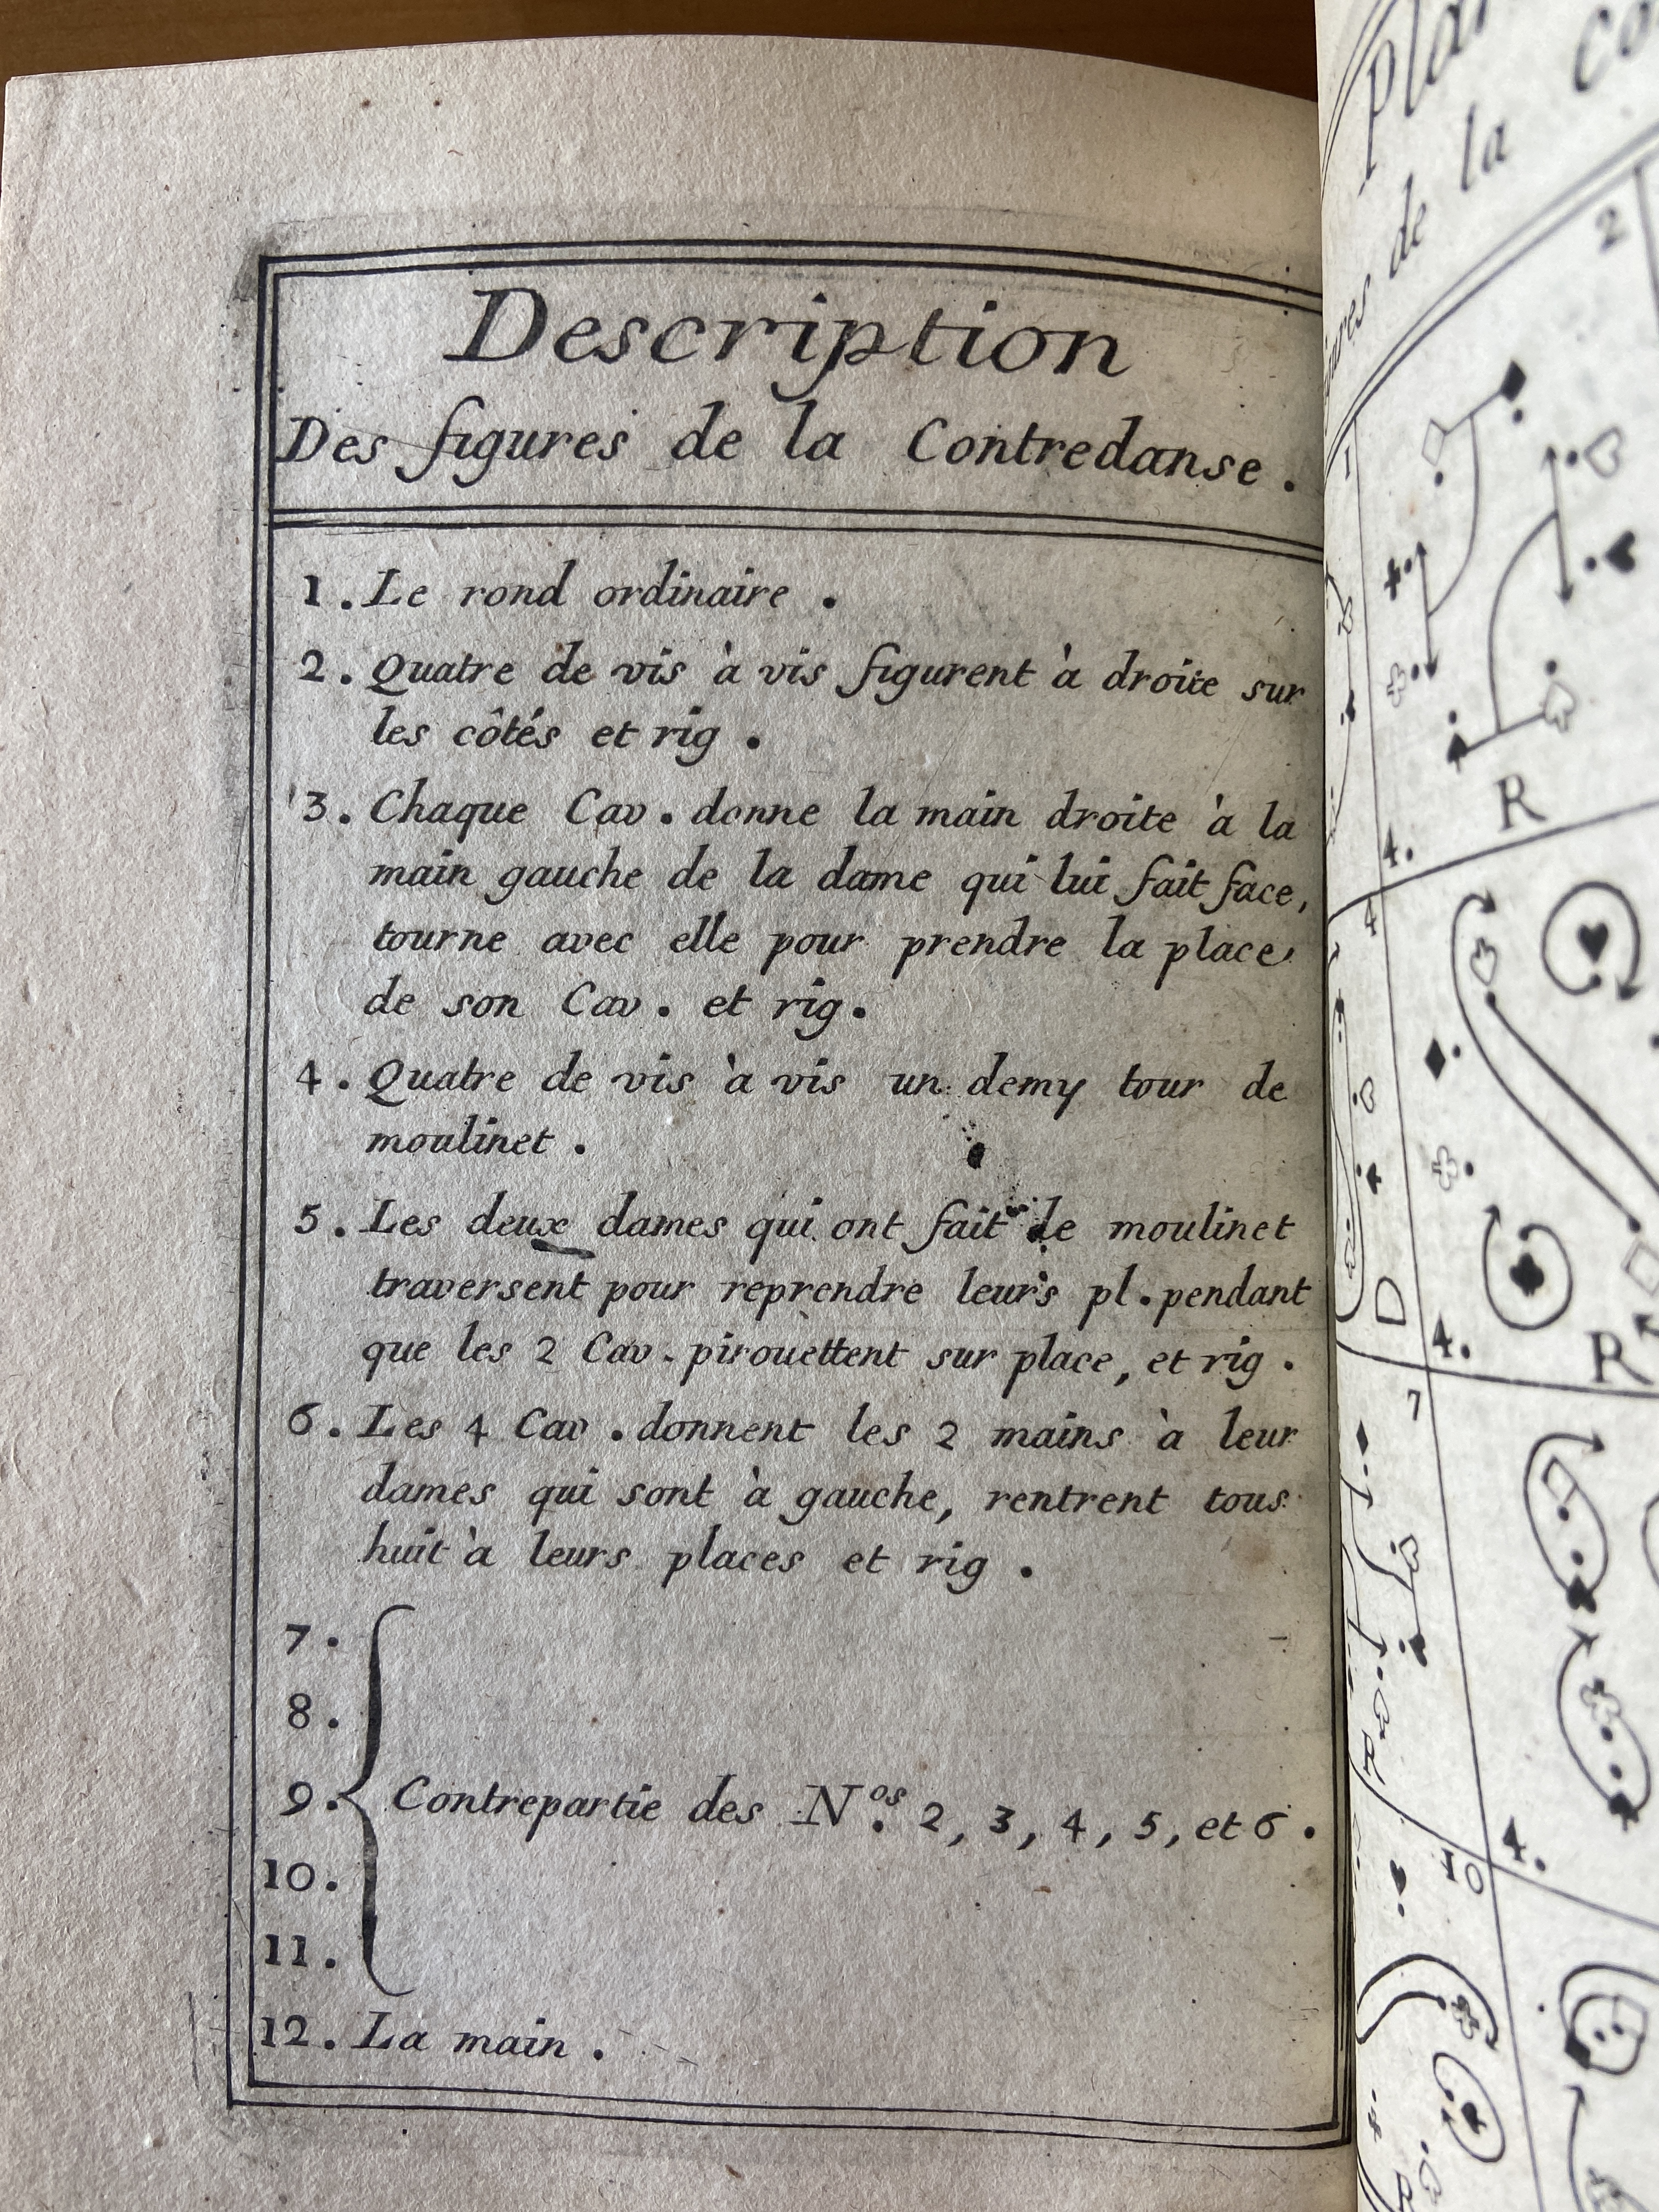 Description
Des figures de la Contredanse .
1. Le rond ordinaire .
2. Quatre de vis à vis figurent à droite sur
les côtés et rig .
3. Chaque Cav . donne la main droite à la
main gauche de la dame qui lui fait face,
tourne avec elle pour prendre la place
de son Cav . et rig .
4. Quatre de vis à vis un demy tour de
moulinet .
5. Les deux dames qui ont fait le moulinet
traversent pour reprendre leurs pl . pendant
que les 2 Cav . pirouettent sur place, et rig .
6. Les 4 Cav . donnent les 2 mains à leur
dames qui sont à gauche, rentrent tous
huit à leurs places et rig .
7.
8.
9. Contrepartie des N.os 2, 3, 4, 5, et 6 .
10.
11.
12. La main .
de la
1
2
4.
R
4
D
4.
R
7
4.
10